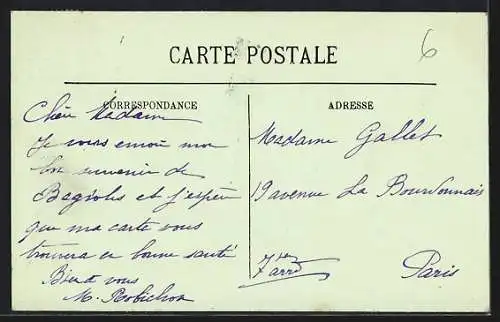 CARTE POSTALE
6
CORRESPONDANCE
ADRESSE
Chère Madame
Je vous envoie mon
bon souvenir de
Bagnoles et j'espère
que ma carte vous
trouvera en bonne santé
Bien à vous
M. Robichon
Madame Gallet
19 avenue La Bourdonnais
7 arr
Paris